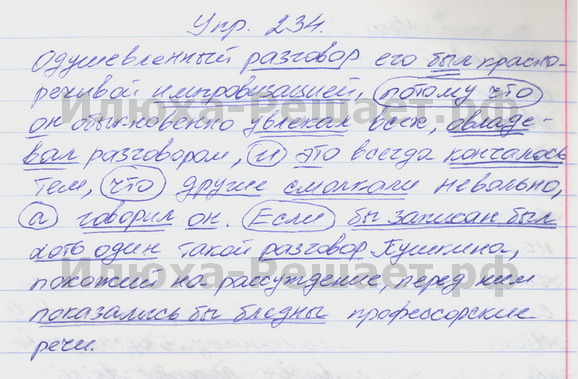 Упр. 234.
Одушевленный разговор его был красно-
речивой импровизацией, потому что
он обыкновенно увлекал всех, овладе-
вал разговором, и это всегда кончалось
тем, что другие смолкали невольно,
а говорил он. Если бы записан был
хоть один такой разговор Пушкина,
похожий на рассуждение, перед ним
показались бы бледны профессорские
речи.
Илюха-Решает.рф
Илюха-Решает.рф